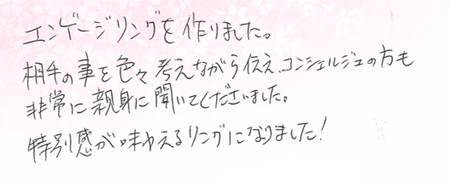 エンゲージリングを作りました。
相手の事を色々考えながら伝え、コンシェルジュの方も
非常に親身に聞いてくださいました。
特別感が味わえるリングになりました!